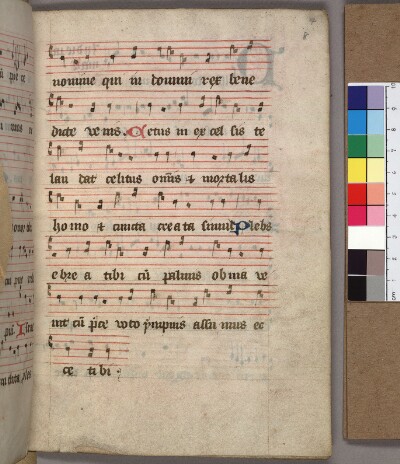 nomine qui in domini rex bene
dicte venis. Cetus in ex cel sis te
lau dat celitus om̄is ⁊ mortalis
homo ⁊ cuncta crea ta simul Plebs
ebre a tibi cū palmis obuia ve
nit cū p̄ce voto ympnis assu mus ec
ce tibi.